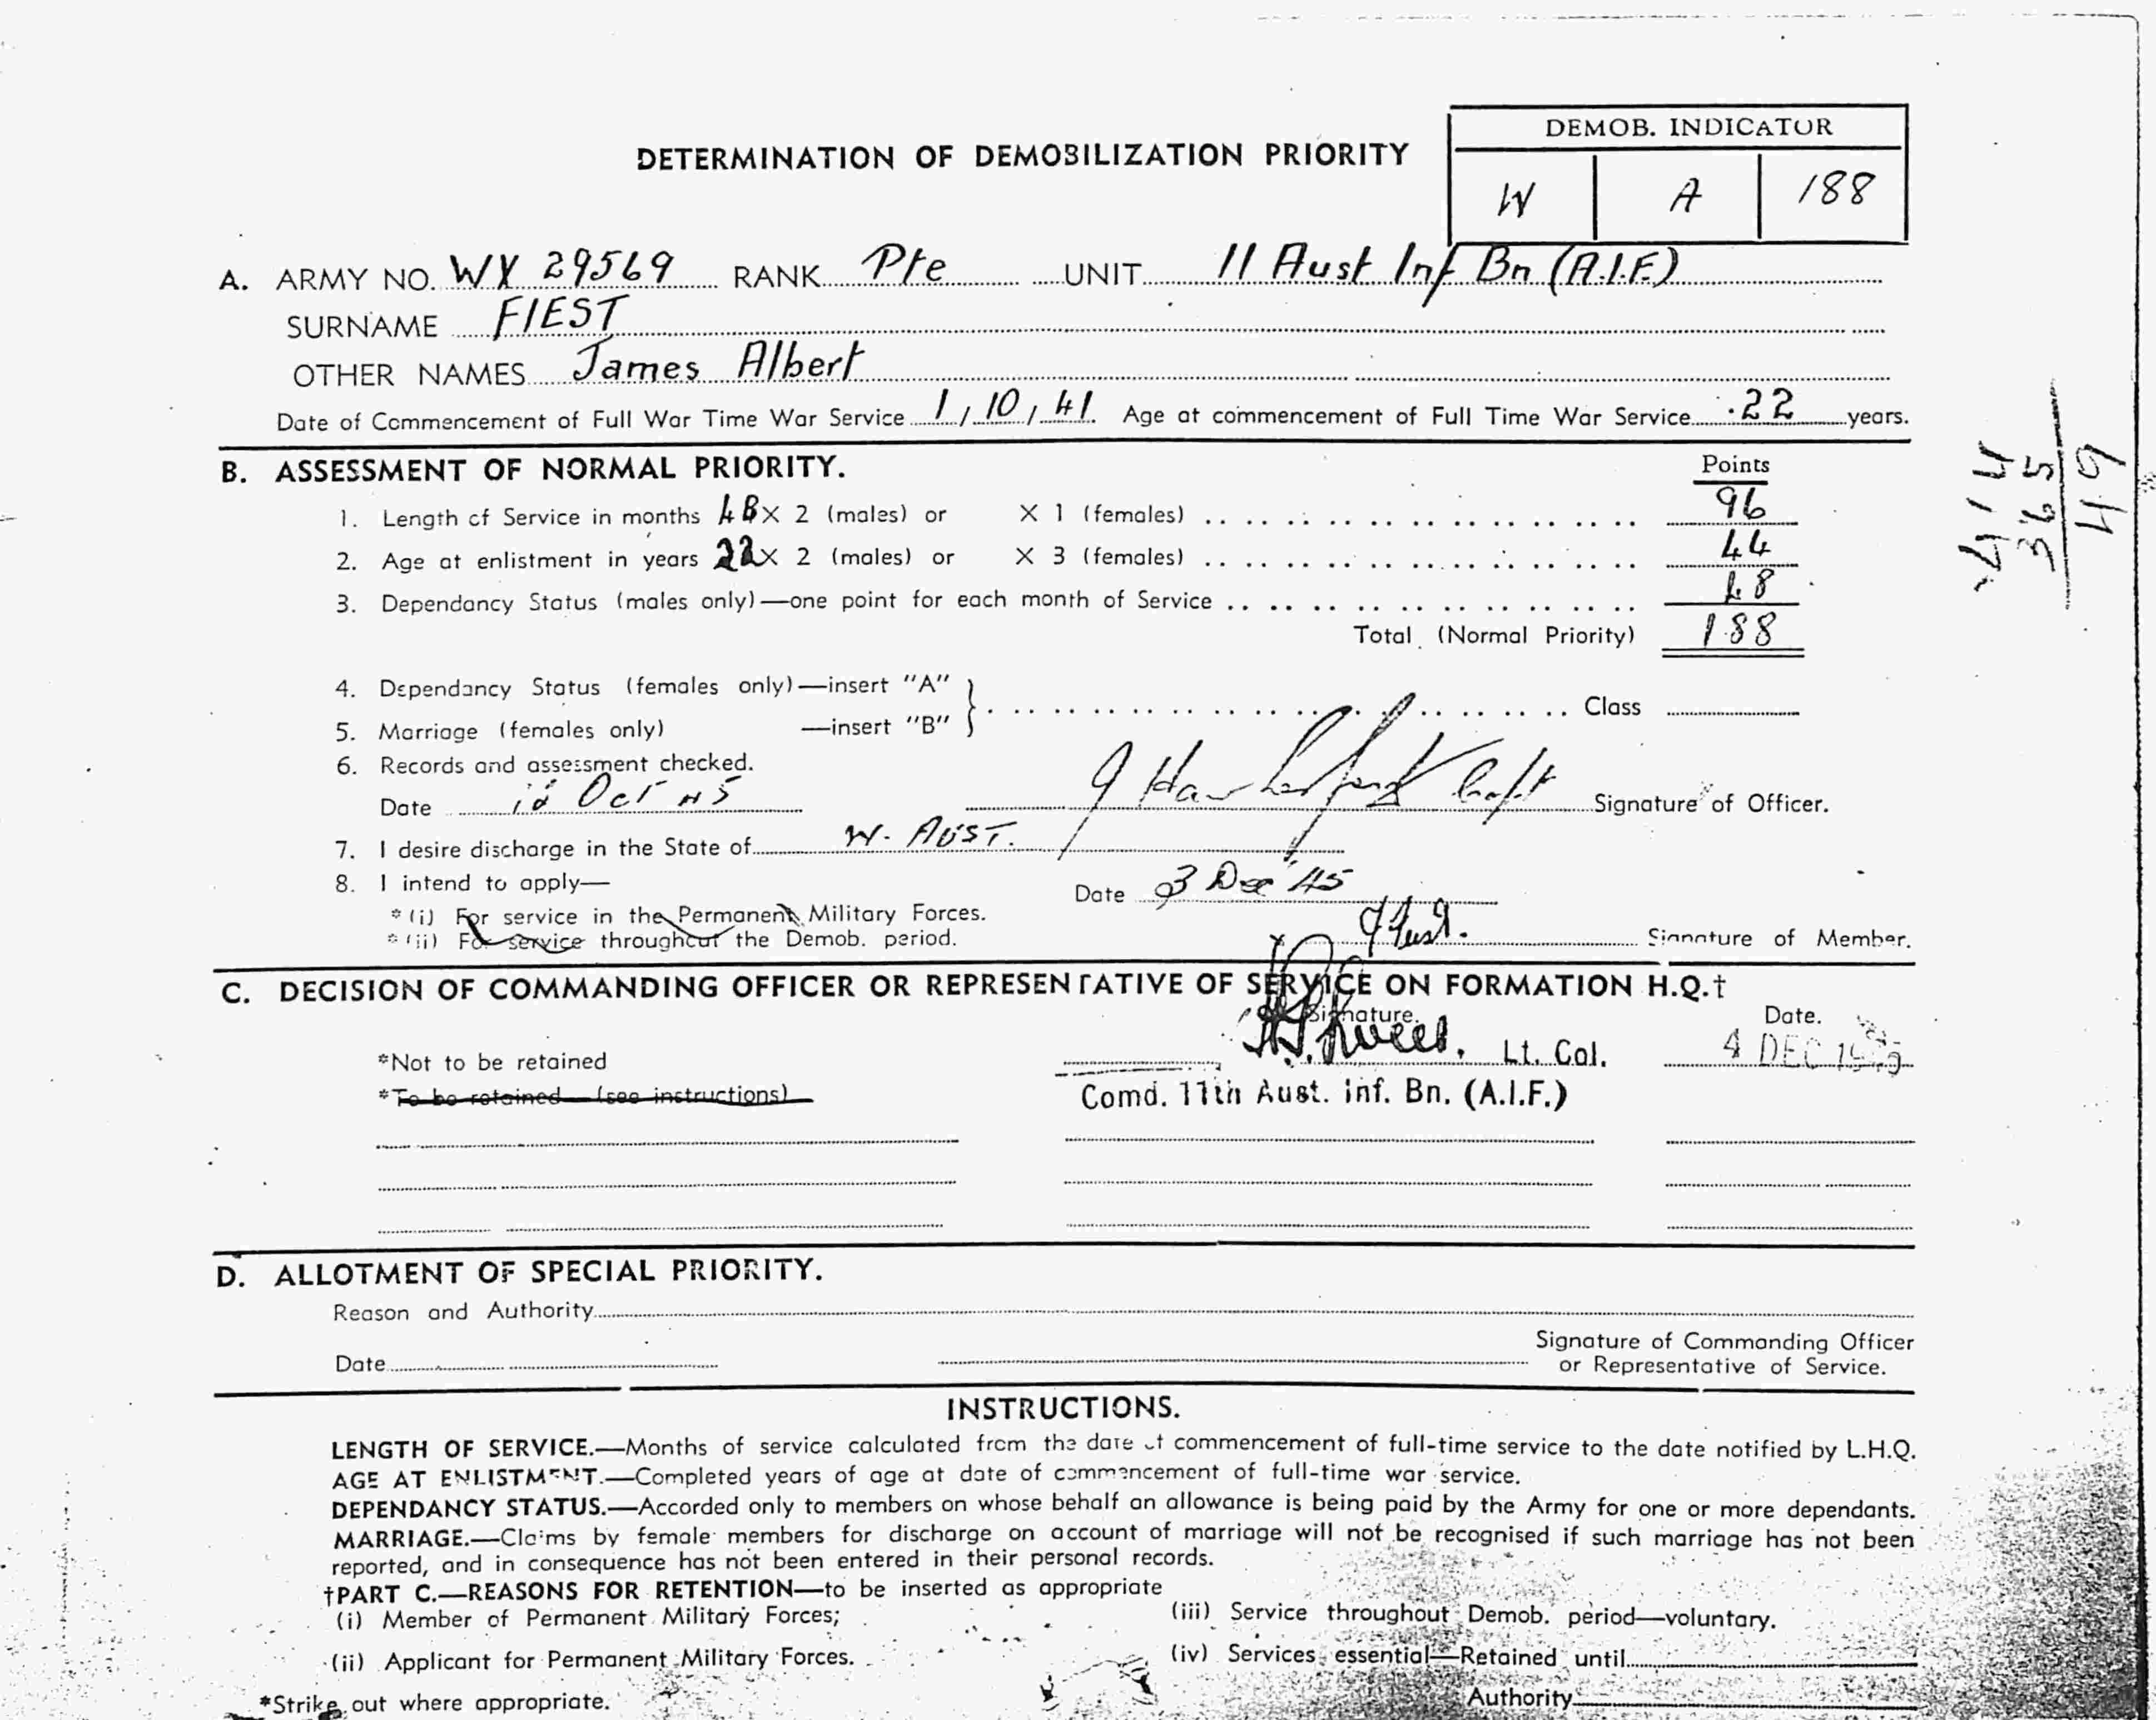 DEMOB. INDICATOR
DETERMINATION OF DEMOBILIZATION PRIORITY
W A 188
A. ARMY NO. WX 29569 RANK Pte UNIT 11 Aust Inf Bn (A.I.F.)
SURNAME FIEST
OTHER NAMES James Albert
Date of Commencement of Full War Time War Service 1/10/41. Age at commencement of Full Time War Service 22 years.
B. ASSESSMENT OF NORMAL PRIORITY. Points
1. Length of Service in months 48 × 2 (males) or × 1 (females) 96
2. Age at enlistment in years 22 × 2 (males) or × 3 (females) 44
3. Dependancy Status (males only)—one point for each month of Service 48
Total (Normal Priority) 188
414
365
49
4. Dependancy Status (females only)—insert "A"
Class
5. Marriage (females only) —insert "B"
6. Records and assessment checked.
Date Oct 45 Signature of Officer.
7. I desire discharge in the State of W. AUST.
8. I intend to apply—
Date 3 Dec '45
*(i) For service in the Permanent Military Forces.
*(ii) For service throughout the Demob. period.
Signature of Member.
C. DECISION OF COMMANDING OFFICER OR REPRESENTATIVE OF SERVICE ON FORMATION H.Q.†
Signature. Date.
*Not to be retained Lt. Col. 4 DEC 1945
*To be retained—(see instructions)
Comd. 11th Aust. Inf. Bn. (A.I.F.)
D. ALLOTMENT OF SPECIAL PRIORITY.
Reason and Authority
Signature of Commanding Officer
Date or Representative of Service.
INSTRUCTIONS.
LENGTH OF SERVICE.—Months of service calculated from the date of commencement of full-time service to the date notified by L.H.Q.
AGE AT ENLISTMENT.—Completed years of age at date of commencement of full-time war service.
DEPENDANCY STATUS.—Accorded only to members on whose behalf an allowance is being paid by the Army for one or more dependants.
MARRIAGE.—Claims by female members for discharge on account of marriage will not be recognised if such marriage has not been
reported, and in consequence has not been entered in their personal records.
†PART C.—REASONS FOR RETENTION—to be inserted as appropriate
(i) Member of Permanent Military Forces;
(iii) Service throughout Demob. period—voluntary.
(ii) Applicant for Permanent Military Forces.
(iv) Services essential—Retained until
*Strike out where appropriate.
Authority